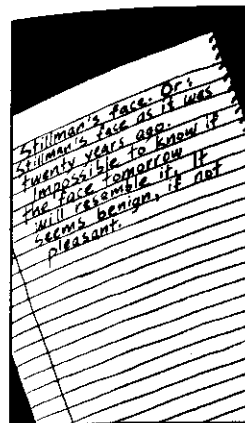 Stillman's face. Or:
Stillman's face as it was
twenty years ago.
Impossible to know if
the face tomorrow
will resemble it. It
seems benign, if not
pleasant.